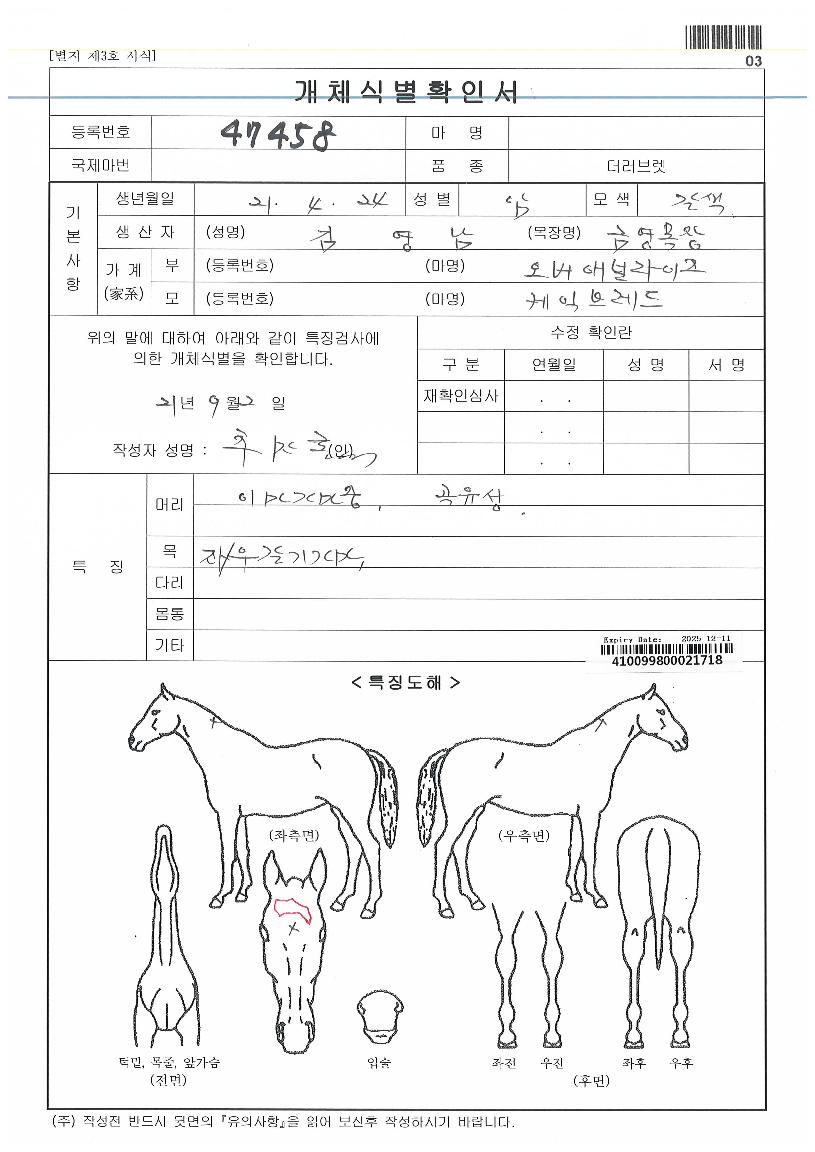 03
[별지 제3호 서식]
개체식별확인서
등록번호 47458 마 명
국제마번 품 종 더러브렛
기본사항 생년월일 21. 4. 24 성 별 암 모 색 갈색
생 산 자 (성명) 김 영 남 (목장명) 금영목장
가 계 (家系) 부 (등록번호) (마명) 오버애널라이즈
모 (등록번호) (마명) 케익브레드
위의 말에 대하여 아래와 같이 특징검사에
의한 개체식별을 확인합니다.
21년 9월 2일
작성자 성명 : (인)
수정 확인란
구 분 연월일 성 명 서 명
재확인심사 . .
. .
. .
특 징
머리 곡유성.
목 좌/우
다리
몸통
기타
Expiry Date: 2025-12-11
410099800021718
< 특징도해 >
(좌측면) (우측면)
턱밑, 목줄, 앞가슴 입술 좌전 우전 좌후 우후
(전면) (후면)
(주) 작성전 반드시 뒷면의 『유의사항』을 읽어 보신후 작성하시기 바랍니다.